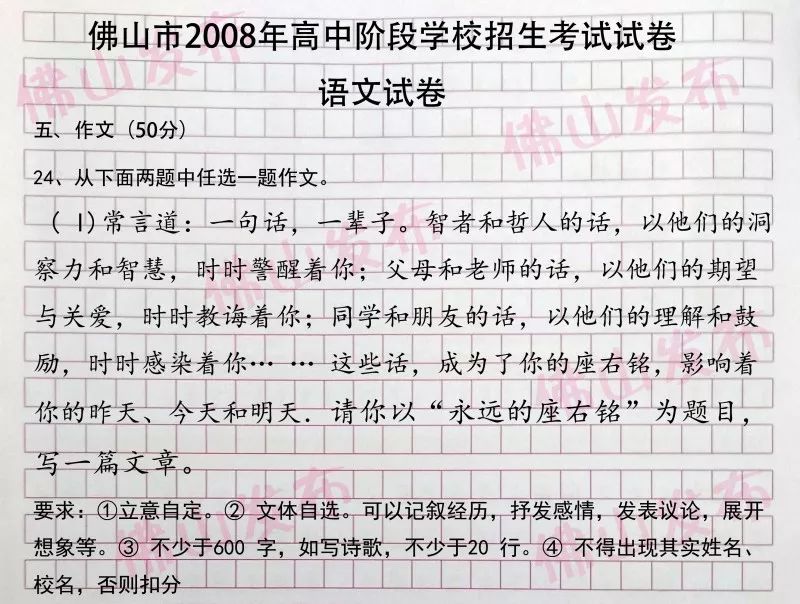 佛山市2008年高中阶段学校招生考试试卷
语文试卷
五、作文（50分）
24、从下面两题中任选一题作文。
（1)常言道：一句话，一辈子。智者和哲人的话，以他们的洞
察力和智慧，时时警醒着你；父母和老师的话，以他们的期望
与关爱，时时教诲着你；同学和朋友的话，以他们的理解和鼓
励，时时感染着你… … 这些话，成为了你的座右铭，影响着
你的昨天、今天和明天．请你以“永远的座右铭”为题目，
写一篇文章。
要求：①立意自定。② 文体自选。可以记叙经历，抒发感情，发表议论，展开
想象等。③ 不少于600 字，如写诗歌，不少于20 行。④ 不得出现其实姓名、
校名，否则扣分
佛山发布
佛山发布
佛山发布
佛山发布
佛山发布
佛山发布